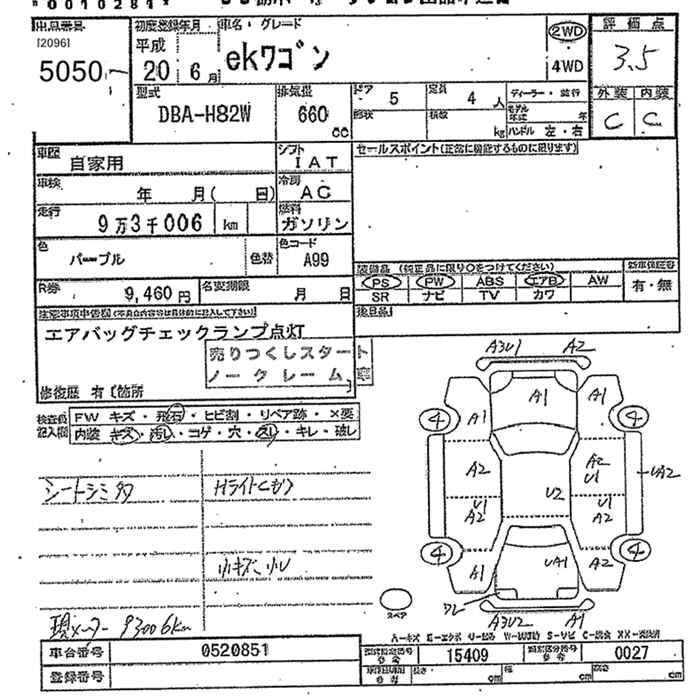 0010281
出品番号 初度登録年月 車名・グレード 評価点
12096I 平成
5050 20 6月 ekワゴン 2WD 4WD 3.5
型式 排気量 ドア 5 定員 4人 ディーラー・並行 外装 内装
DBA-H82W 660cc 形状 積数 kg モデル年式 年 ハンドル 左・右 C C
車歴 自家用 シフト IAT セールスポイント(正常に機能するものに限ります)
車検 年 月( 日) 冷房 AC
走行 9万3千006 km 燃料 ガソリン
色 パープル 色替 色コード A99
装備品 (純正品に限り○をつけてください) 新車保証書
R券 9,460円 名変期限 月 日 PS PW ABS エアB AW 有・無
SR ナビ TV カワ
注意事項申告欄 後日品
エアバッグチェックランプ点灯
売りつくしスタート
ノークレーム
修復歴 有〔箇所
検査員記入欄 FW キズ・飛石・ヒビ割・リペア跡・×要
内装 キズ・汚レ・コゲ・穴・スレ・キレ・破レ
シートシミ多 Hライトヒカリ
小キズ、小U
現メーター 93006km
A3U1 A2
A1 A1 A1
4 4
A2 A2 U1 UA2
U1 A2 U2 U1 A2
4 4
A1 UA1 A2
スペア A3U2 A1
車台番号 0520851 型式指定番号 参考 15409 類別区分番号 参考 0027
登録番号 長さ cm 幅 cm 高さ cm